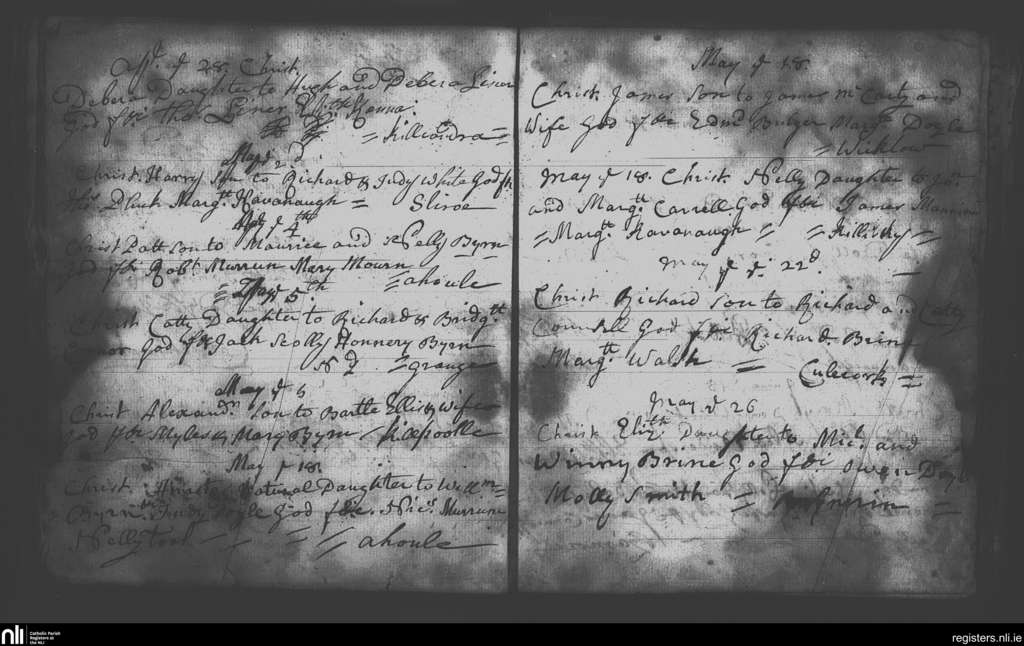 Apl ye 28. Christ.
Debera Daughter to Hugh and Debera
God fthr Thos Eliz:th Hanna:
= Killcandra =
May ye 2d
Christ. Harry Son to Richard & Judy White God fthr
Marg:tt Kavanaugh = Sliroe
May ye 4th
Christ Patt son to Maurice and Nelly Byrn
God fthr Robt Murrun Mary Mourn
= ahoule
May ye 5th
Christ Catty Daughter to Richard & Bridg:tt
God fthr Jack Scolly Honnery Byrn
N 2 = grange
May ye 6
Christ Alexandr Son to Bartle Ellis & wife
God fthr Myles & Marg Byrn / Killpoolle
May ye 18.
Christ. Natural Daughter to Willm
Byrn & Judy Doyle God fthr. Nics. Murrun
Nelly Tool = ahoule
May ye 18.
Christ. James Son to James mc Carty and
Wife God fthr Edmd Bulger Margtt Doyle
= Wicklow
May ye 18. Christ. Nelly Daughter to Jon
and Marg:tt Carrell God fthr James
= Marg:tt Kavanaugh = = Killisky =
may ye 22d.
Christ Richard Son to Richard and Catty
Counsell God fthr Richard Brine
Marg:tt Walsh = Culecork =
may ye 26
Christ Eliz:th Daughter to Micl and
Winny Brine God fthr Owen Doyle
Molly Smith =
nli
Catholic Parish
Registers at
the NLI
registers.nli.ie